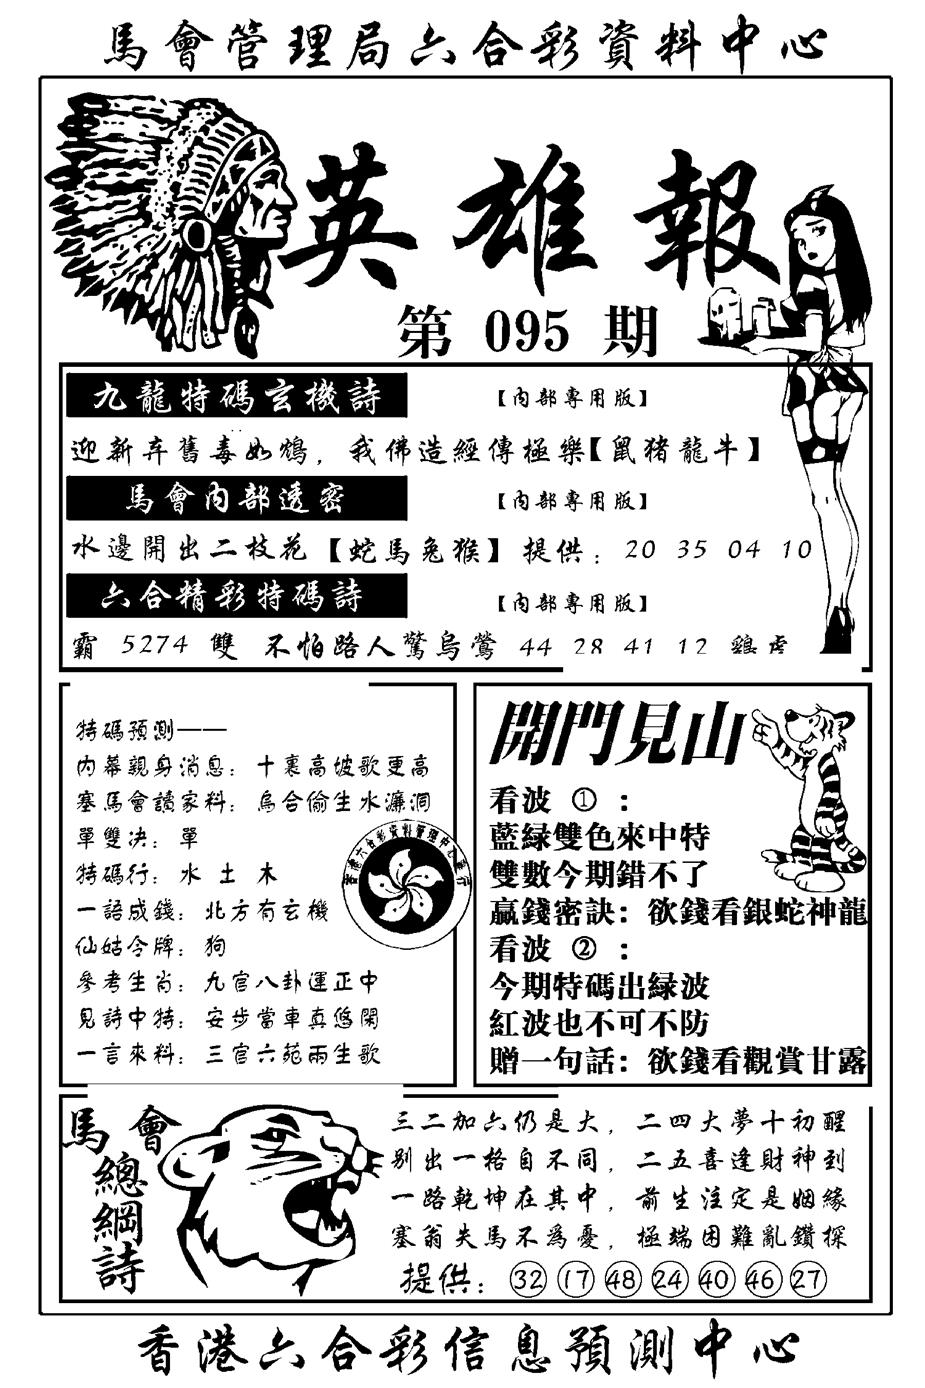 馬會管理局六合彩資料中心
英雄報
第 095 期
九龍特碼玄機詩 【內部專用版】
迎新弃舊毒如鴆，我佛造經傳極樂【鼠猪龍牛】
馬會內部透密 【內部專用版】
水邊開出二枝花【蛇馬兔猴】提供：20 35 04 10
六合精彩特碼詩 【內部專用版】
霸 5274 雙 不怕路人驚烏鶯 44 28 41 12 鷄虎
特碼預測——
內幕親身消息：十裏高坡歌更高
塞馬會讀家料：烏合偷生水濂洞
單雙决：單
特碼行：水 土 木
一語成錢：北方有玄機
仙姑令牌：狗
參考生肖：九宫八卦運正中
見詩中特：安步當車真悠閑
一言來料：三宫六苑兩生歌
開門見山
看波 ① ：
藍緑雙色來中特
雙數今期錯不了
贏錢密訣：欲錢看銀蛇神龍
看波 ② ：
今期特碼出緑波
紅波也不可不防
贈一句話：欲錢看觀賞甘露
馬會
總綱詩
三二加六仍是大，二四大夢十初醒
别出一格自不同，二五喜逢財神到
一路乾坤在其中，前生注定是姻緣
塞翁失馬不爲憂，極端困難亂鑽探
提供：㉜ ⑰ ㊽ ㉔ ㊵ ㊻ ㉗
香港六合彩信息預測中心